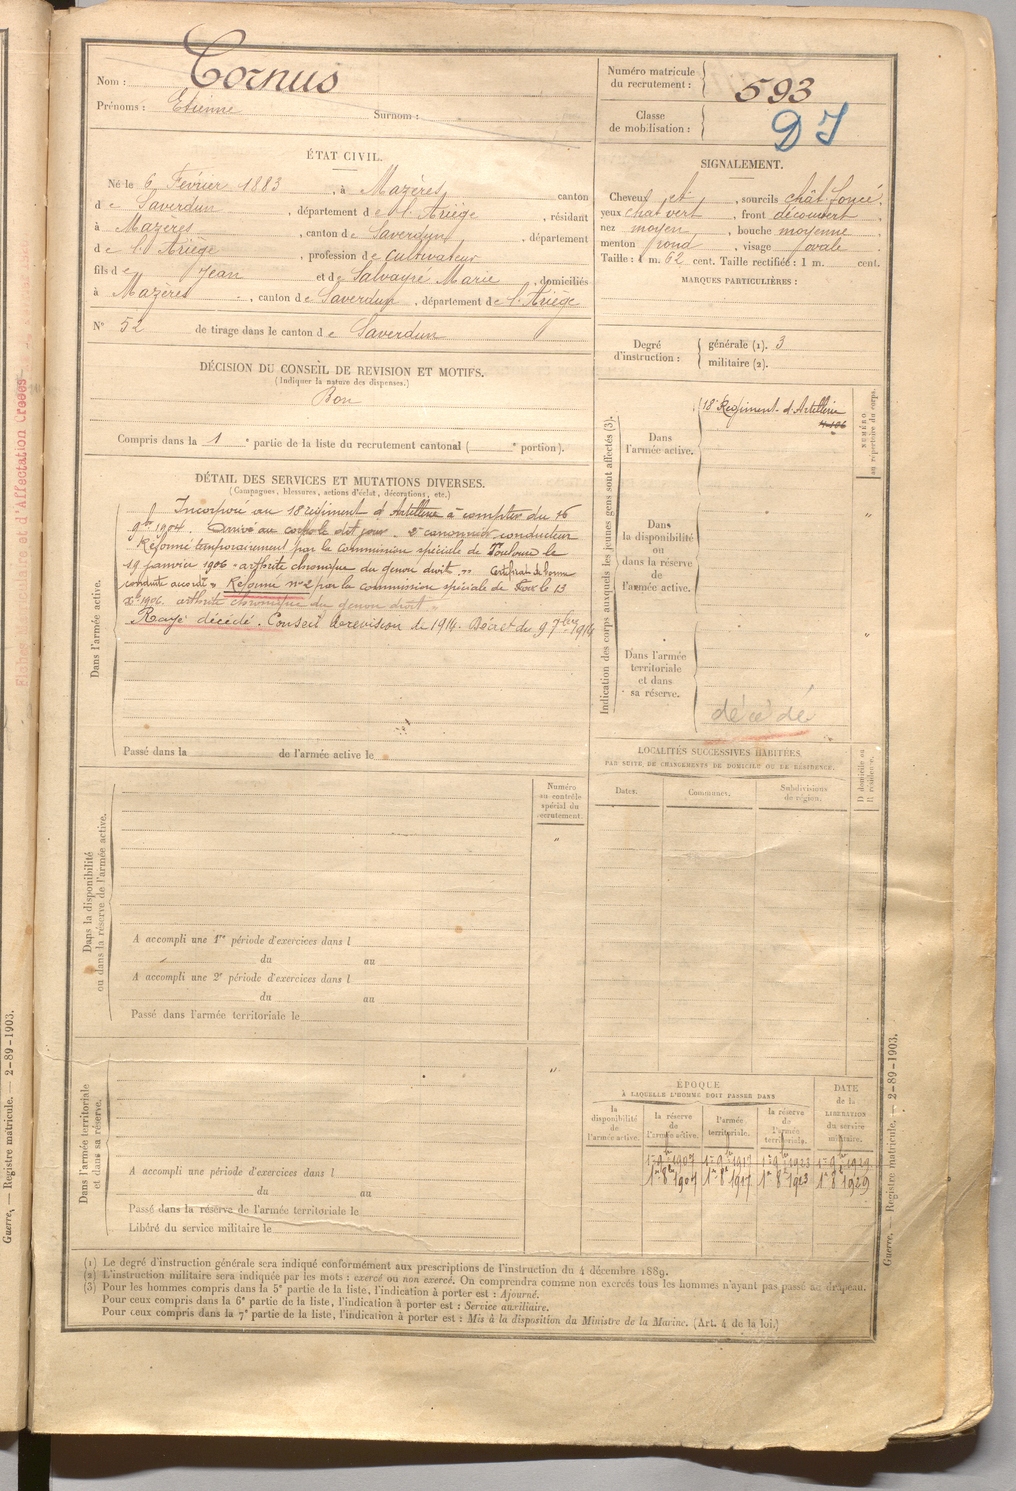 Nom : Cornus
Prénoms : Etienne Surnom :
Numéro matricule du recrutement : 593
Classe de mobilisation : DJ
ÉTAT CIVIL.
Né le 6 Février 1883, à Mazères, canton
de Saverdun, département de l'Ariège, résidant
à Mazères, canton de Saverdun, département
de l'Ariège, profession de cultivateur
fils de Jean et de Salvayré Marie, domiciliés
à Mazères, canton de Saverdun, département de l'Ariège
N° 52 de tirage dans le canton de Saverdun
SIGNALEMENT.
Cheveux et, sourcils chât foncé.
yeux chat vert, front découvert,
nez moyen, bouche moyenne
menton rond, visage ovale
Taille : 1 m. 62 cent. Taille rectifiée : 1 m. cent.
MARQUES PARTICULIÈRES :
Degré d'instruction : générale (1). 3
militaire (2).
DÉCISION DU CONSEIL DE REVISION ET MOTIFS.
(Indiquer la nature des dispenses.)
Bon
Compris dans la 1e partie de la liste du recrutement cantonal ( e portion).
DÉTAIL DES SERVICES ET MUTATIONS DIVERSES.
(Campagnes, blessures, actions d'éclat, décorations, etc.)
Dans l'armée active.
Incorporé au 18 régiment d'Artillerie à compter du 16
9bre 1904. Arrivé au corps le dit jour. 2e canonnier conducteur
Réformé temporairement par la commission spéciale de Toulouse le
19 janvier 1906 "arthrite chronique du genou droit." Certificat de bonne
conduite accordé" Réformé n°2 par la commission spéciale de Foix le 13
Xbre 1906. arthrite chronique du genou droit"
Rayé décédé. Conseil de revision de 1914. Décret du 9 7bre 1914
Passé dans la de l'armée active le
Indication des corps auxquels les jeunes gens sont affectés (3).
NUMÉRO au répertoire du corps.
Dans l'armée active.
18e Régiment d'Artillerie
Dans la disponibilité ou dans la réserve de l'armée active.
Dans l'armée territoriale et dans sa réserve.
décédé
LOCALITÉS SUCCESSIVES HABITÉES
PAR SUITE DE CHANGEMENTS DE DOMICILE OU DE RÉSIDENCE.
Dates. Communes. Subdivisions de région. D domicile ou R résidence.
Numéro au contrôle spécial du recrutement.
Dans la disponibilité ou dans la réserve de l'armée active.
A accompli une 1re période d'exercices dans l
du au
A accompli une 2e période d'exercices dans l
du au
Passé dans l'armée territoriale le
Dans l'armée territoriale et dans sa réserve.
A accompli une période d'exercices dans l
du au
Passé dans la réserve de l'armée territoriale le
Libéré du service militaire le
ÉPOQUE
À LAQUELLE L'HOMME DOIT PASSER DANS
la disponibilité de l'armée active. la réserve de l'armée active. l'armée territoriale. la réserve de l'armée territoriale.
DATE de la LIBÉRATION du service militaire.
1er 9bre 1907 1er 9bre 1917 1er 9bre 1923 1er 9bre 1929
1er 8bre 1907 1er 8bre 1917 1er 8bre 1923 1er 8bre 1929
(1) Le degré d'instruction générale sera indiqué conformément aux prescriptions de l'instruction du 4 décembre 1889.
(2) L'instruction militaire sera indiquée par les mots : exercé ou non exercé. On comprendra comme non exercés tous les hommes n'ayant pas passé au drapeau.
(3) Pour les hommes compris dans la 5e partie de la liste, l'indication à porter est : Ajourné.
Pour ceux compris dans la 6e partie de la liste, l'indication à porter est : Service auxiliaire.
Pour ceux compris dans la 7e partie de la liste, l'indication à porter est : Mis à la disposition du Ministre de la Marine. (Art. 4 de la loi.)
Guerre. — Registre matricule. — 2-89-1903.
Guerre. — Registre matricule. — 2-89-1903.